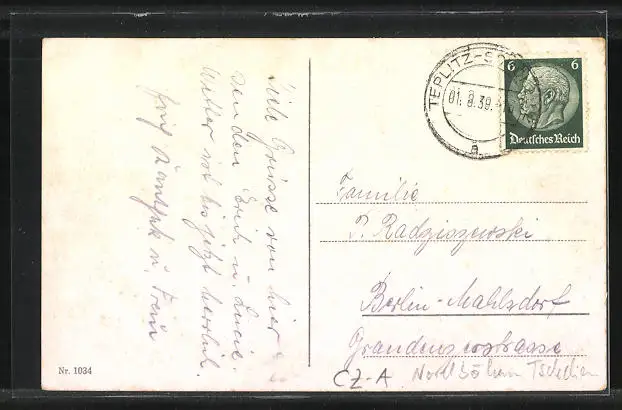 Viele Grüsse von hier
senden Erich u. Lucie.
Wetter ist bis jetzt herrlich.
Frau
Nr. 1034
TEPLITZ-S
01.8.39
a
6 6
Deutsches Reich
Familie
P. Radziszewski
Berlin-Mahlsdorf
Graudenzerstrasse
CZ-A Nordböhmen Tschechien